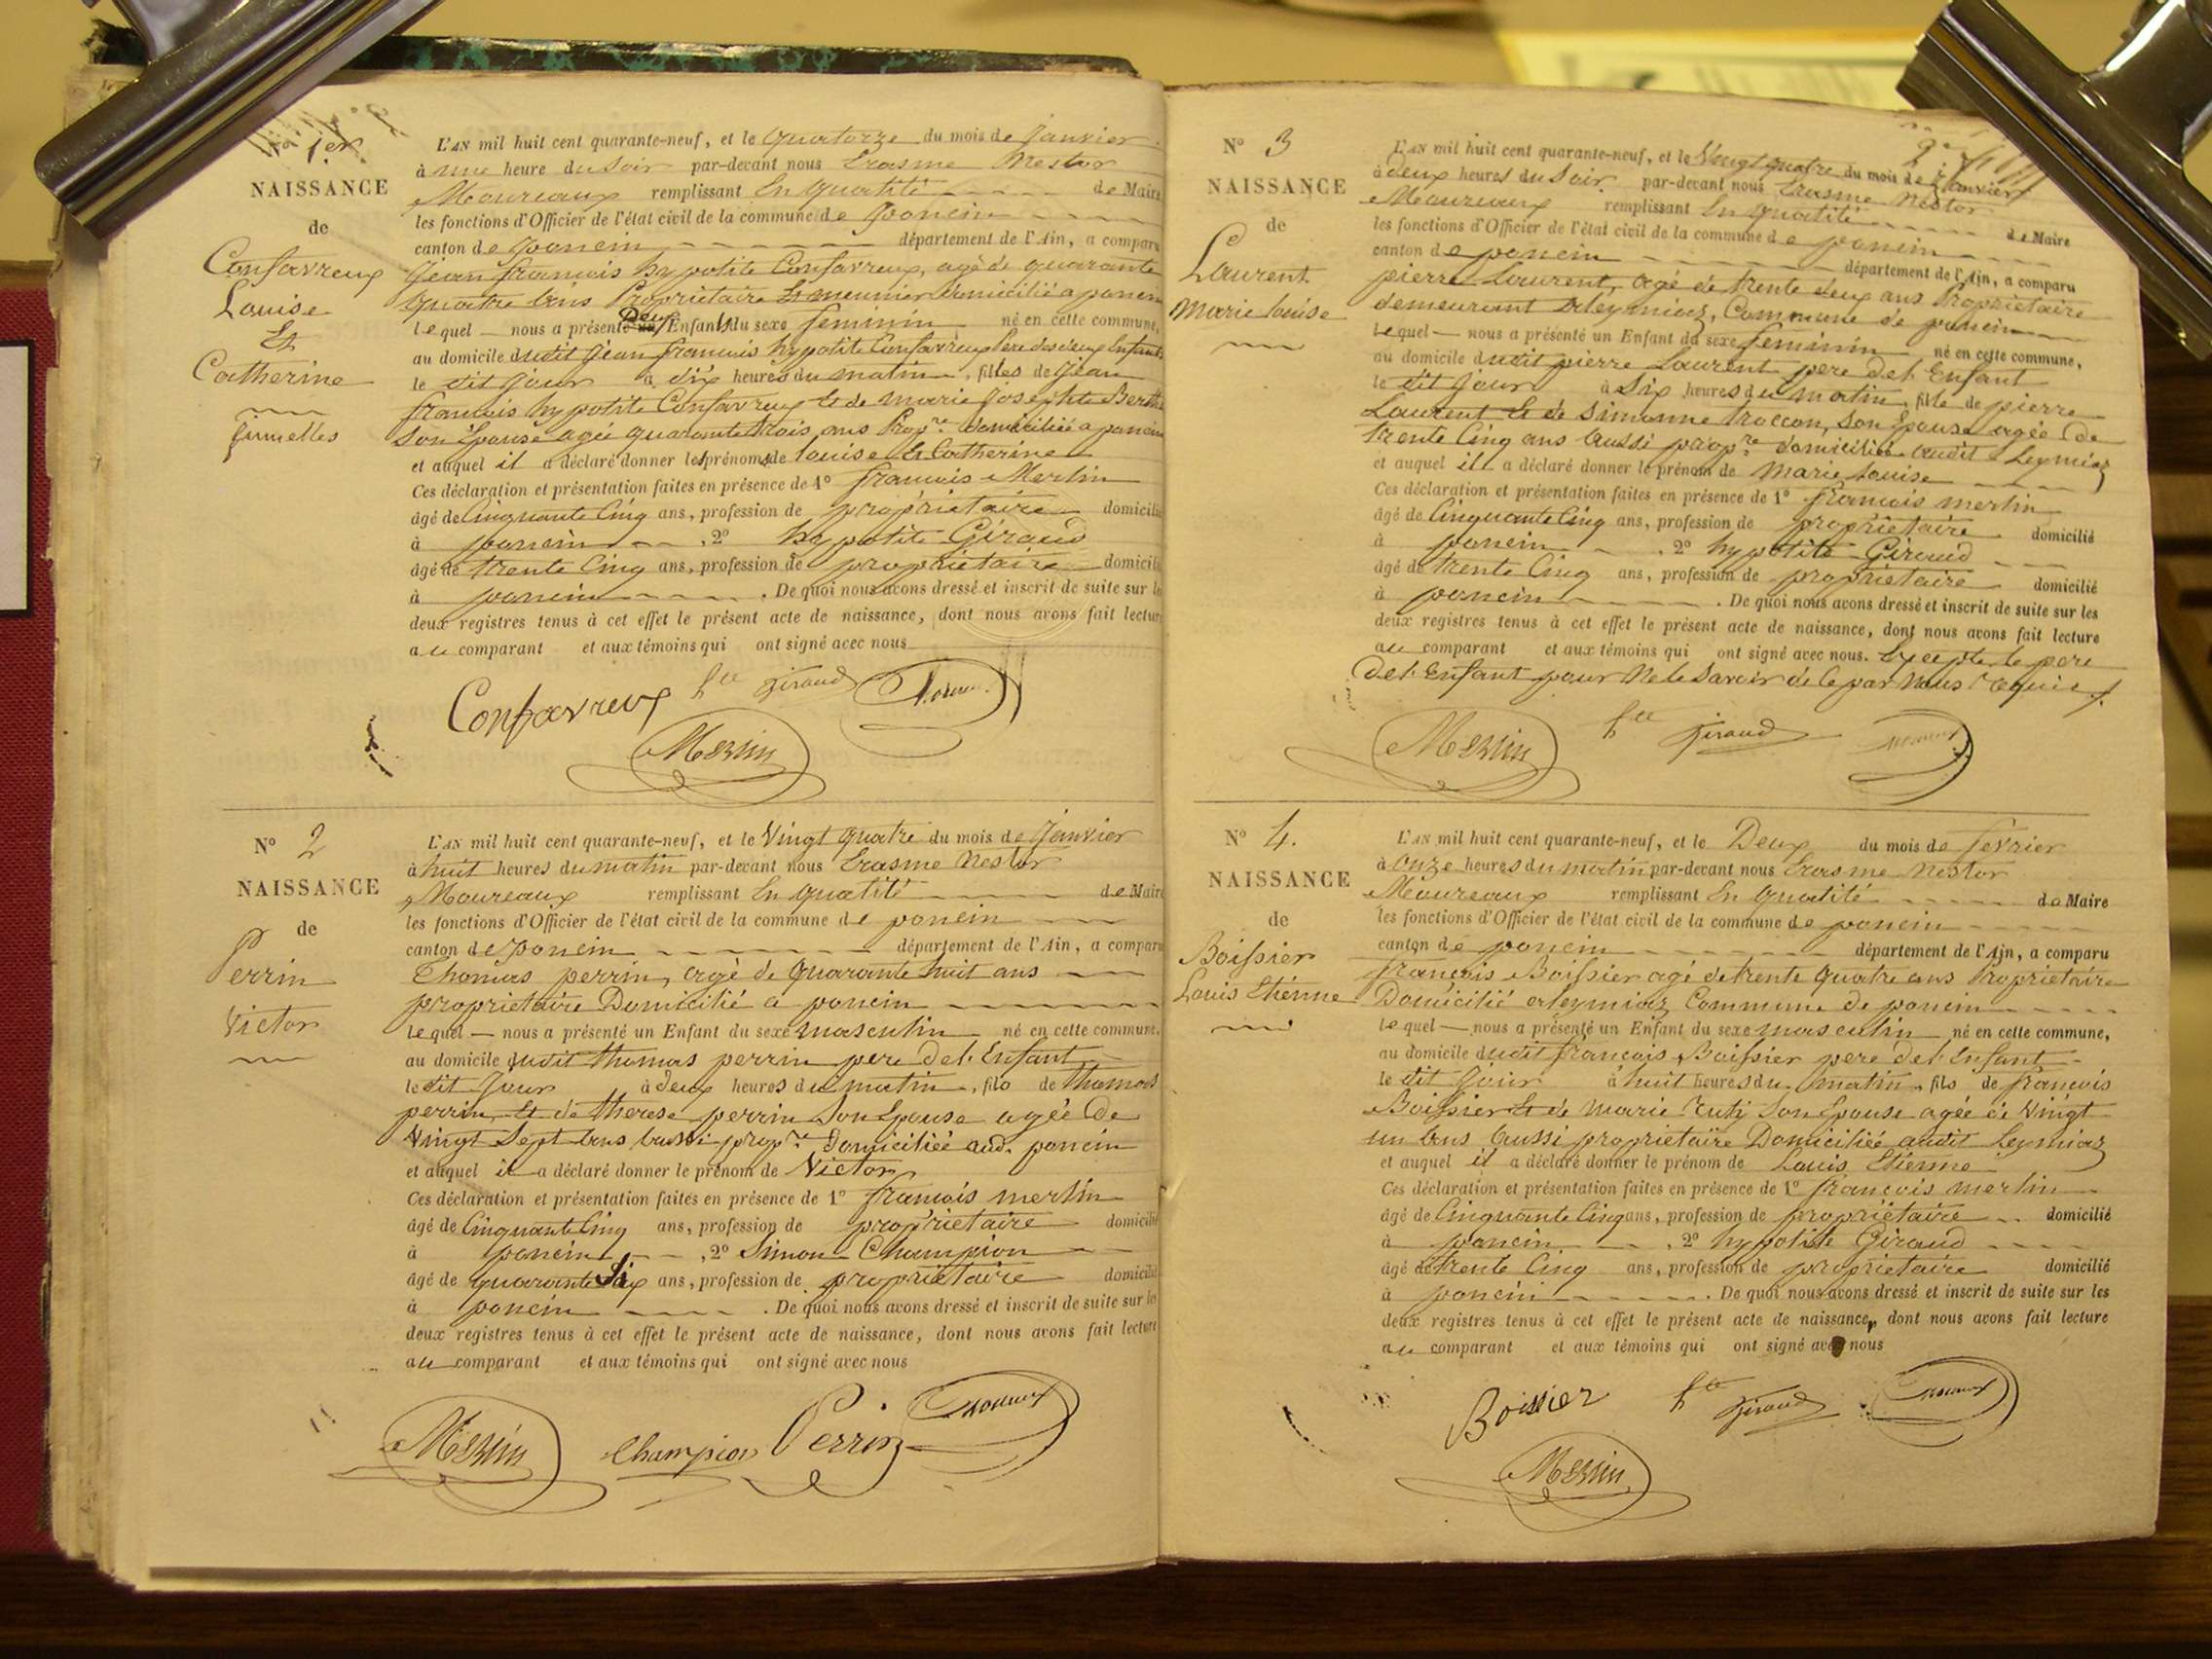 1er
NAISSANCE
de
Confavreux
Louise
Et
Catherine
jumelles
L'AN mil huit cent quarante-neuf, et le quatorze du mois de Janvier
à une heure du Soir par-devant nous Erasme Nestor
Moureaux remplissant En qualité de Maire
les fonctions d'Officier de l'état civil de la commune de poncin
canton de poncin département de l'Ain, a comparu
Jean francois hypolite Confavreux, agé de quarante
quatre ans Proprietaire Et meunier domicilié a poncin
lequel nous a présenté Deux Enfants du sexe feminin né en cette commune,
au domicile dudit Jean francois hypolite Confavreux pere des deux Enfants
le dit jour à dix heures du matin, filles de Jean
francois hypolite Confavreux Et de marie josephte Berth
Son Epouse agée quarante trois ans Propre domiciliée a poncin
et auquel il a déclaré donner les prénoms de Louise Et Catherine
Ces déclaration et présentation faites en présence de 1° francois Merlin
âgé de Cinquante Cinq ans, profession de propriétaire domicilié
à poncin , 2° hypolite Giraud
âgé de trente Cinq ans, profession de propriétaire domicilié
à poncin . De quoi nous avons dressé et inscrit de suite sur les
deux registres tenus à cet effet le présent acte de naissance, dont nous avons fait lecture
au comparant et aux témoins qui ont signé avec nous
Confavreux hte Giraud
Merlin
N° 2
NAISSANCE
de
Perrin
Victor
L'AN mil huit cent quarante-neuf, et le Vingt quatre du mois de Janvier
à huit heures du matin par-devant nous Erasme Nestor
Moureaux remplissant En qualité de Maire
les fonctions d'Officier de l'état civil de la commune de poncin
canton de poncin département de l'Ain, a comparu
Thomas perrin, agé de quarante huit ans
proprietaire Domicilié a poncin
lequel nous a présenté un Enfant du sexe masculin né en cette commune,
au domicile dudit thomas perrin pere de l'Enfant
le dit Jour à deux heures du matin, fils de thomas
perrin, Et de therese perrin Son Epouse agée de
Vingt Sept ans aussi propre domiciliée aud. poncin
et auquel il a déclaré donner le prénom de Victor
Ces déclaration et présentation faites en présence de 1° francois merlin
âgé de Cinquante Cinq ans, profession de propriétaire domicilié
à poncin , 2° Simon Champion
âgé de quarante Six ans, profession de proprietaire domicilié
à poncin . De quoi nous avons dressé et inscrit de suite sur les
deux registres tenus à cet effet le présent acte de naissance, dont nous avons fait lecture
au comparant et aux témoins qui ont signé avec nous
Merlin Champion Perrin
N° 3
NAISSANCE
de
Laurent
Marie Louise
L'AN mil huit cent quarante-neuf, et le Vingt quatre du mois de Janvier
à deux heures du Soir par-devant nous Erasme Nestor
Moureaux remplissant En qualité de Maire
les fonctions d'Officier de l'état civil de la commune de poncin
canton de poncin département de l'Ain, a comparu
pierre Laurent, agé de trente deux ans Propriétaire
demeurant a leymiaz, Commune de poncin
lequel nous a présenté un Enfant du sexe feminin né en cette commune,
au domicile dudit pierre Laurent pere de l'Enfant
le dit jour à Six heures du matin, fille de pierre
Laurent Et de Simonne troccon, Son Epouse agée de
trente Cinq ans aussi propre domiciliée audit Leymiaz
et auquel il a déclaré donner le prénom de Marie Louise
Ces déclaration et présentation faites en présence de 1° francois merlin
âgé de Cinquante Cinq ans, profession de propriétaire domicilié
à poncin . 2° hypolite Giraud
âgé de trente Cinq ans, profession de propriétaire domicilié
à poncin . De quoi nous avons dressé et inscrit de suite sur les
deux registres tenus à cet effet le présent acte de naissance, dont nous avons fait lecture
au comparant et aux témoins qui ont signé avec nous. Excepté le pere
de l'Enfant pour ne le Savoir de ce par Nous requis
Merlin hte Giraud
N° 4.
NAISSANCE
de
Boissier
Louis Etienne
L'AN mil huit cent quarante-neuf, et le Deux du mois de fevrier
à Onze heures du matin par-devant nous Erasme Nestor
Moureaux remplissant En qualité de Maire
les fonctions d'Officier de l'état civil de la commune de poncin
canton de poncin département de l'Ain, a comparu
françois Boissier agé de trente quatre ans Propriétaire
Domicilié a leymiaz Commune de poncin
lequel nous a présenté un Enfant du sexe masculin né en cette commune,
au domicile dudit francois Boissier pere de l'Enfant
le dit Jour à huit heures du matin, fils de francois
Boissier Et de Marie Son Epouse agée de Vingt
un ans aussi propriétaire Domiciliée audit Leymiaz
et auquel il a déclaré donner le prénom de Louis Etienne
Ces déclaration et présentation faites en présence de 1° françois merlin
âgé de Cinquante Cinq ans, profession de propriétaire domicilié
à poncin , 2° hypolite Giraud
âgé de trente Cinq ans, profession de propriétaire domicilié
à poncin . De quoi nous avons dressé et inscrit de suite sur les
deux registres tenus à cet effet le présent acte de naissance, dont nous avons fait lecture
au comparant et aux témoins qui ont signé avec nous
Boissier hte Giraud
Merlin